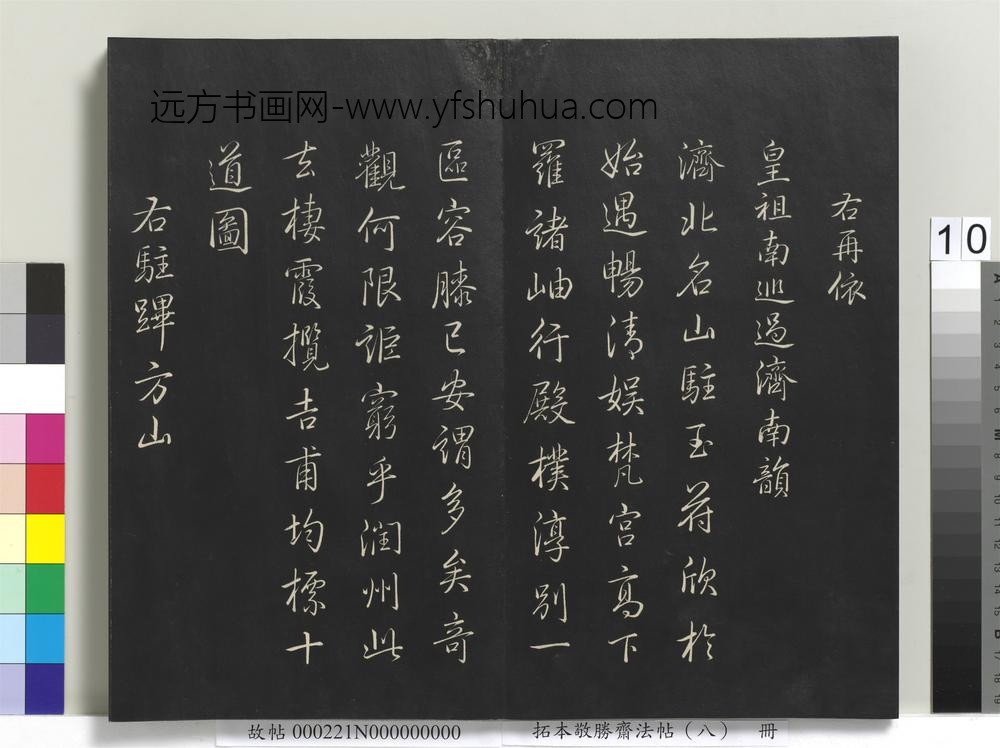 远方书画网-www.yfshuhua.com
右再依
皇祖南巡過濟南韻
濟北名山駐玉苻欣於
始遇暢清娛梵宮高下
羅諸岫行殿樸淳別一
區容膝已安謂多矣奇
觀何限詎窮乎潤州此
去棲霞攬吉甫均標十
道圖
右駐蹕方山
10
故帖 000221N000000000
拓本敬勝齋法帖（八） 冊